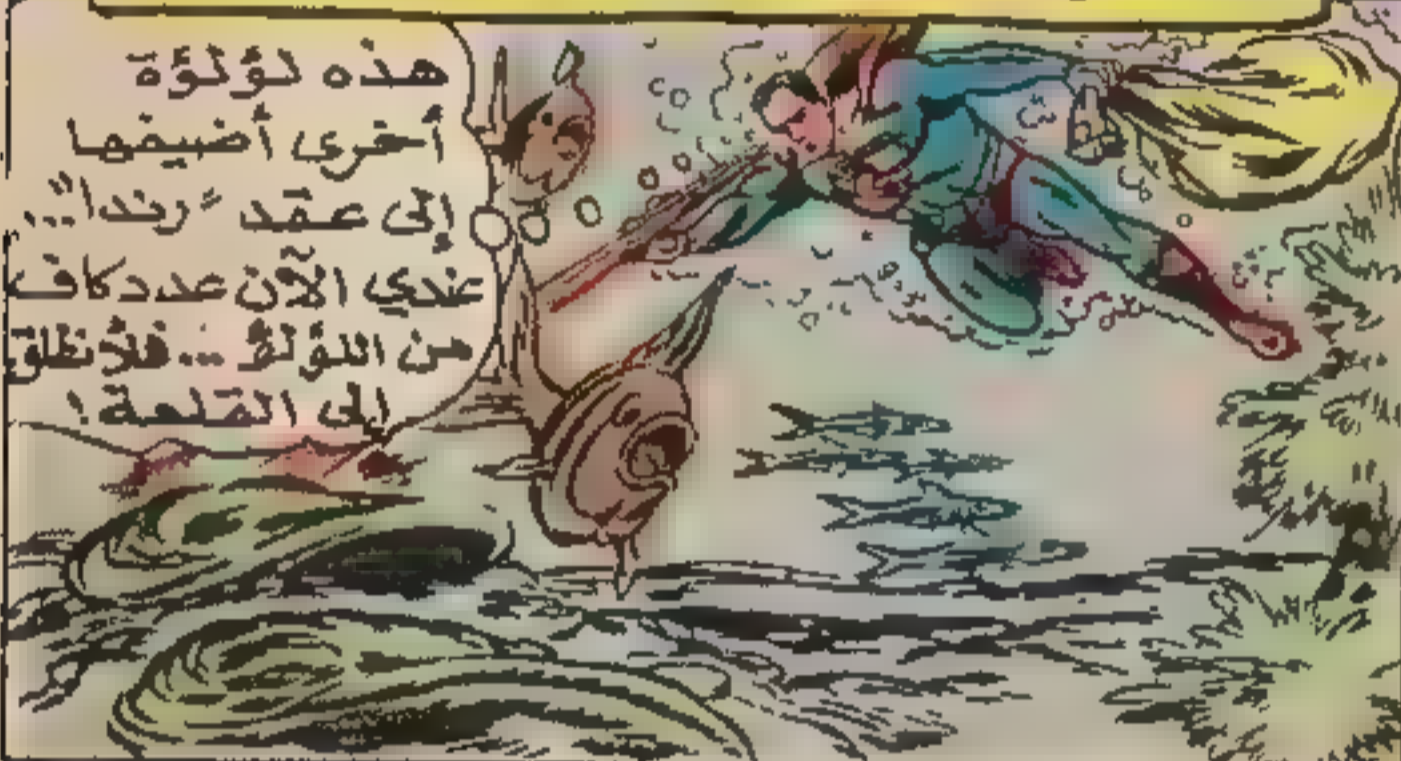 هذه لؤلؤة
أخرى أضيفها
إلى عقد "رندا"...
عندي الآن عدد كاف
من اللؤلؤ ... فلأنطلق
إلى القلعة!